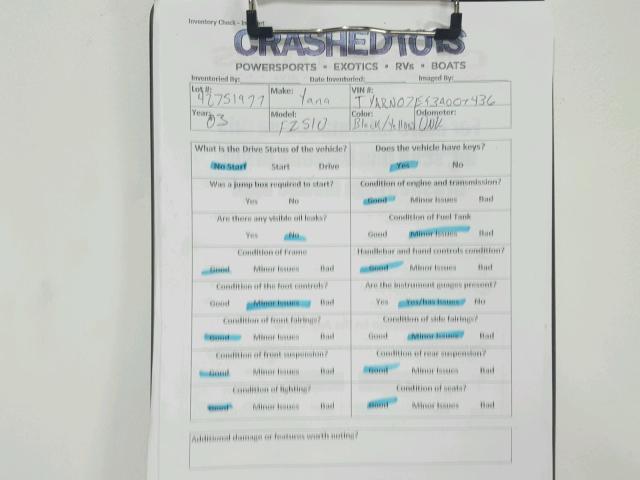 Inventory Check - 
CRASHEDTOYS
POWERSPORTS • EXOTICS • RVs • BOATS
Inventoried By: Date Inventoried: Imaged By:
Lot #: Make: VIN #:
42751977 Yama
Year: Model: Color: Odometer:
03 FZS10 Black/Yellow UNK
What is the Drive Status of the vehicle? Does the vehicle have keys?
No Start Start Drive Yes No
Was a jump box required to start? Condition of engine and transmission?
Yes No Good Minor Issues Bad
Are there any visible oil leaks? Condition of Fuel Tank
Yes No Good Minor Issues Bad
Condition of Frame Handlebar and hand controls condition?
Good Minor Issues Bad Good Minor Issues Bad
Condition of the foot controls? Are the instrument gauges present?
Good Minor Issues Bad Yes Yes/has issues No
Condition of front fairings? Condition of side fairings?
Good Minor Issues Bad Good Minor Issues Bad
Condition of front suspension? Condition of rear suspension?
Good Minor Issues Bad Good Minor Issues Bad
Condition of lighting? Condition of seats?
Good Minor Issues Bad Good Minor Issues Bad
Additional damage or features worth noting?